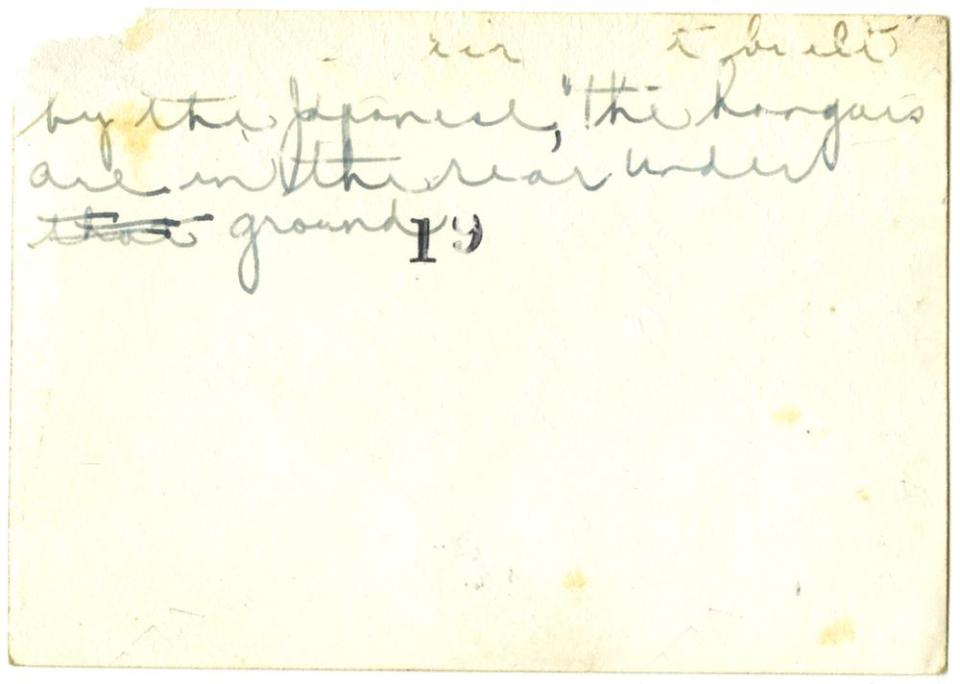 built
by the Japanese, the hangars
are in the rear under
that ground
19